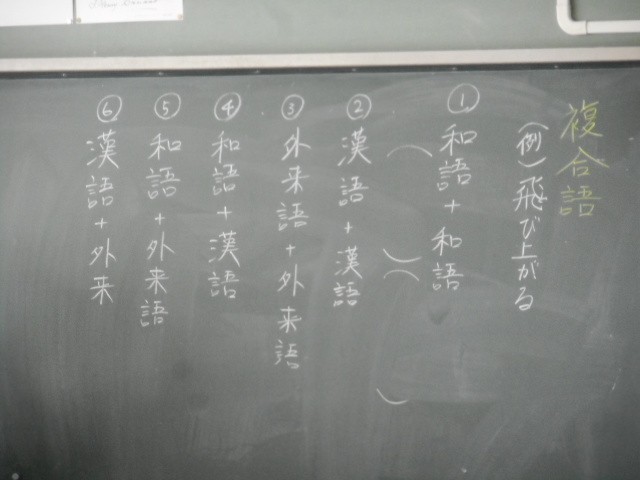 複合語
(例)飛び上がる
①和語+和語
( )( )
②漢語+漢語
③外来語+外来語
④和語+漢語
⑤和語+外来語
⑥漢語+外来